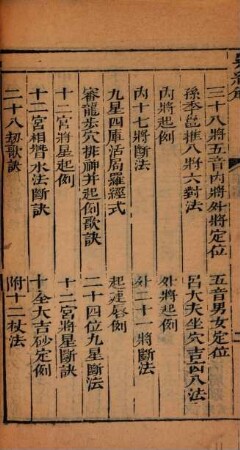 三十八將五音內將外將定位
五音男女定位
孫季邕推八將六對法
呂大夫坐穴吉凶八法
內將起例
外將起例
內十七將斷法
外二十一將斷法
九星四庫活局羅經式
起建唇例
審龍步穴排神并起例歌訣
二十四位九星斷法
十二宮將星起例
十二宮將星斷訣
十二宮相替水法斷訣
十全大吉砂定例
二十八劫歌訣
附十二杖法